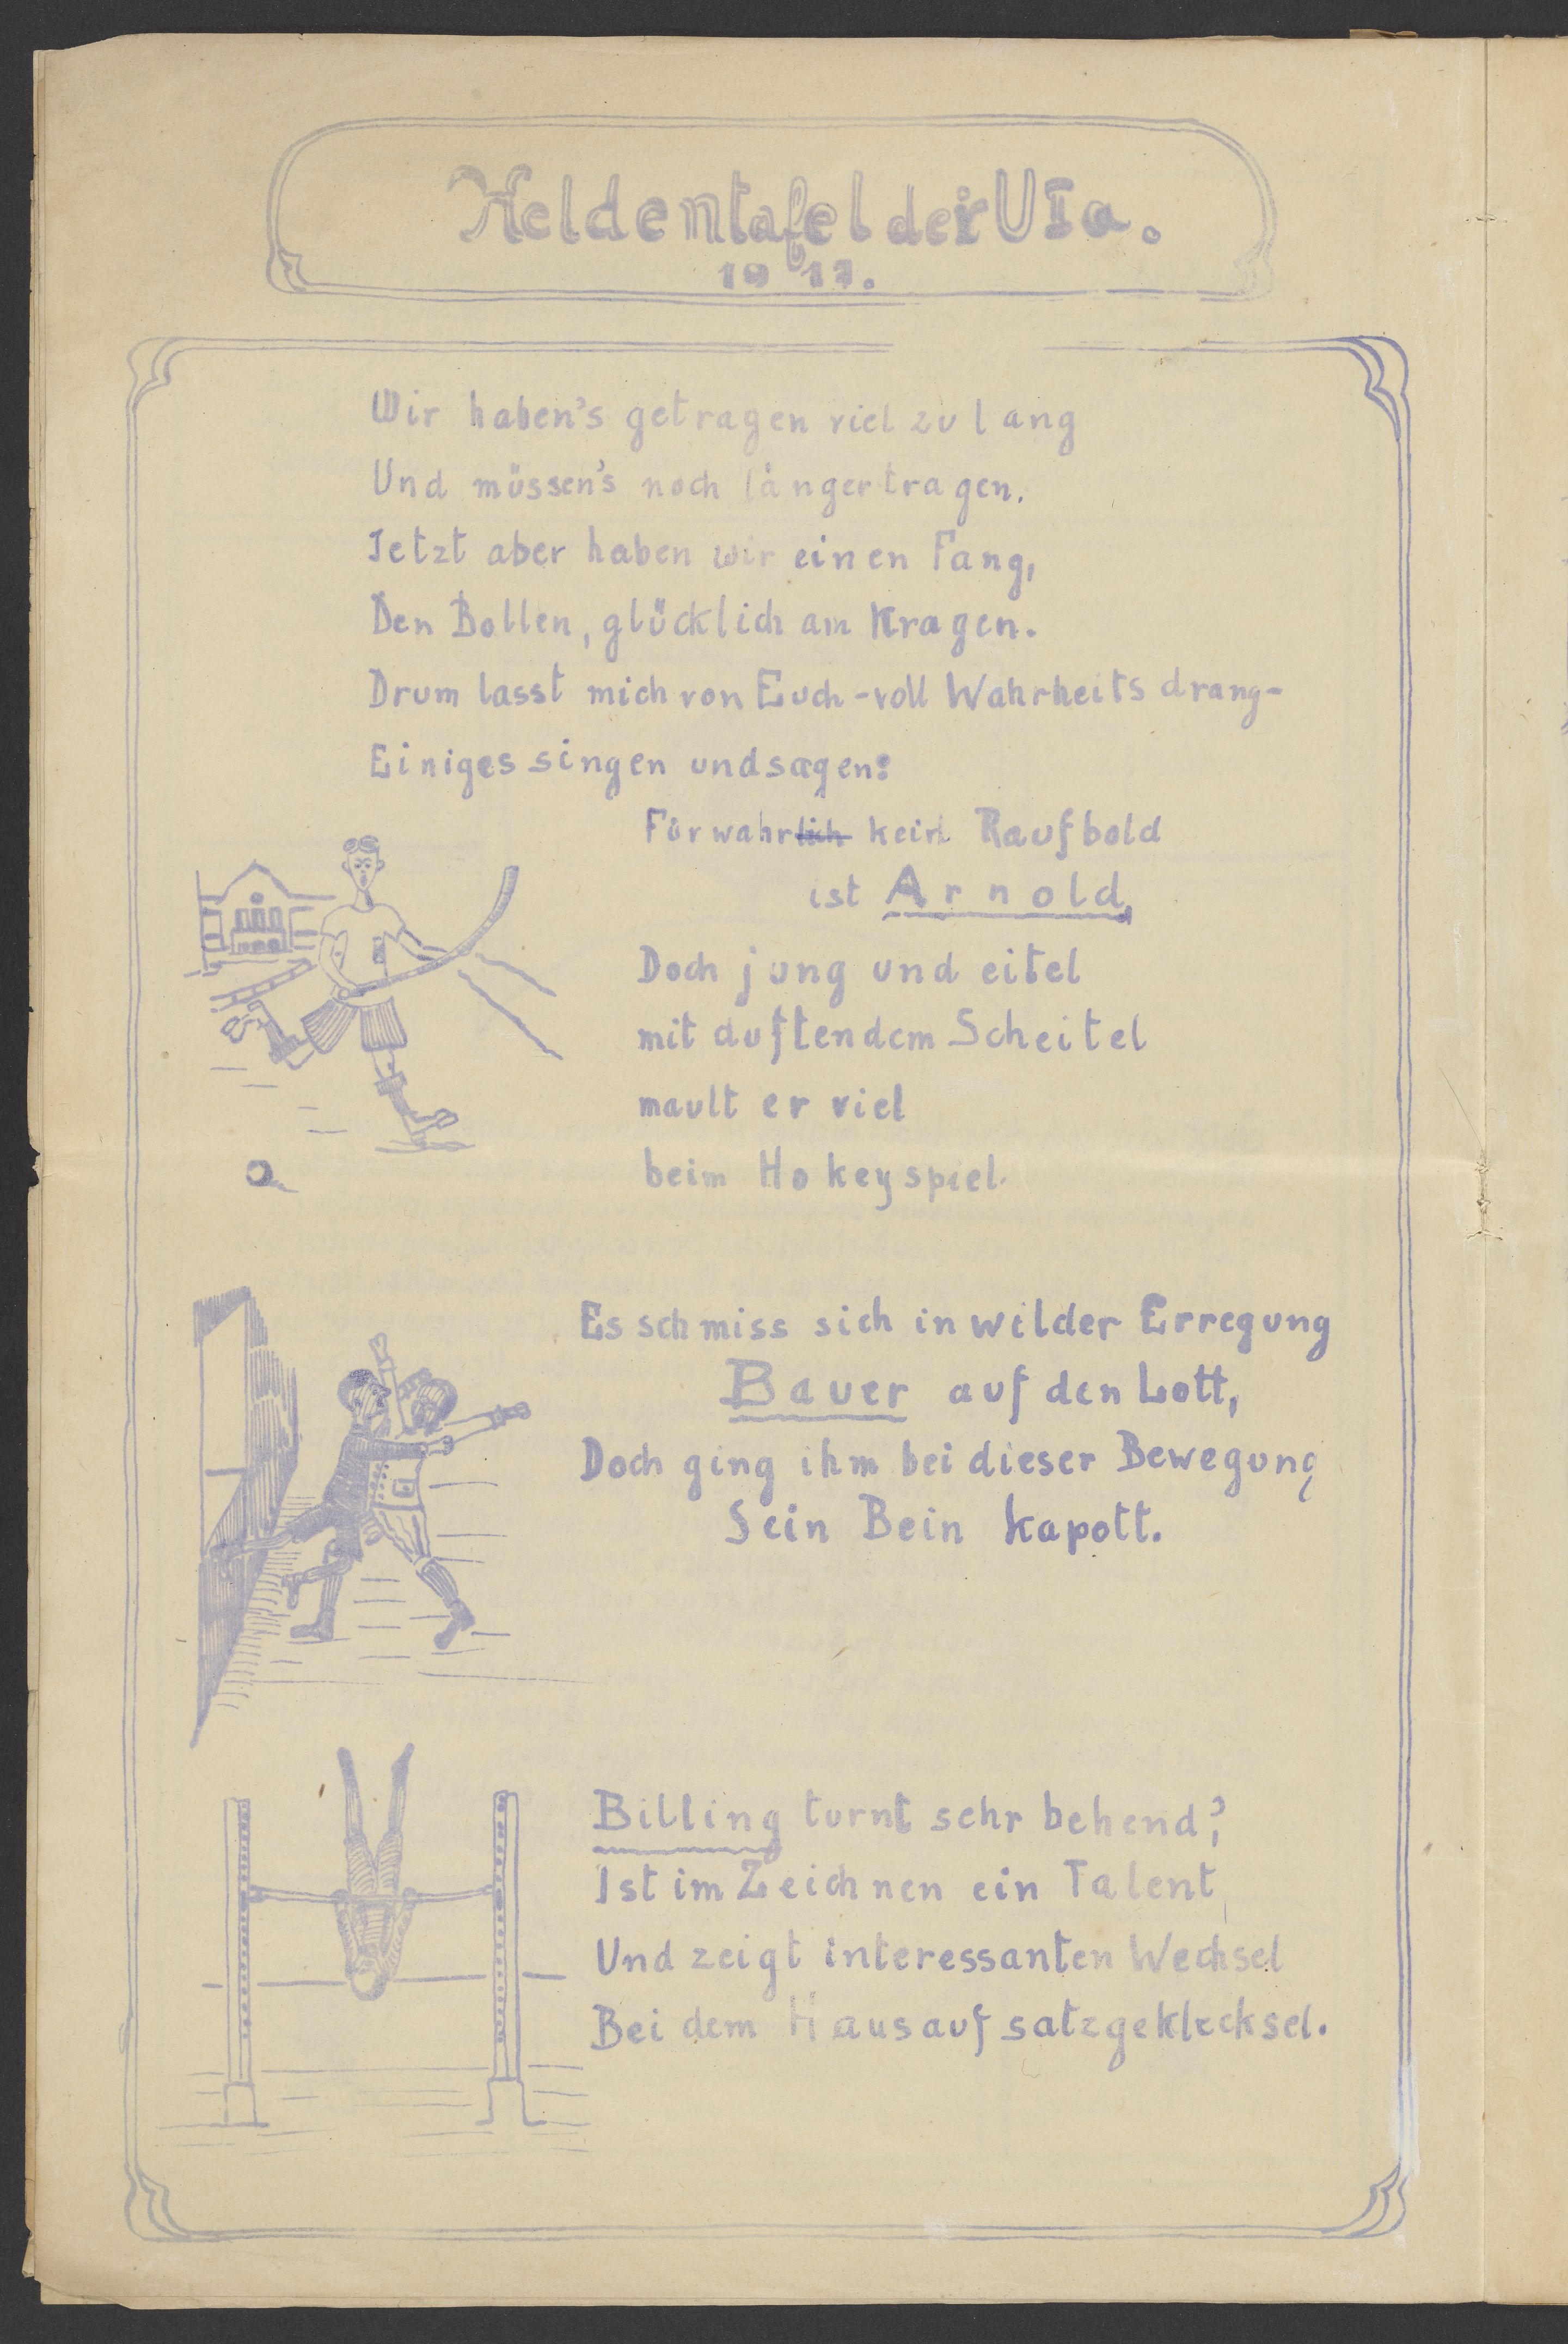 Heldentafel der UIa.
1917.
Wir haben's getragen viel zu lang
Und müssen's noch länger tragen.
Jetzt aber haben wir einen Fang,
Den Bollen, glücklich am Kragen.
Drum lasst mich von Euch - voll Wahrheitsdrang -
Einiges singen und sagen:
Fürwahrlich kein Raufbold
ist Arnold,
Doch jung und eitel
mit duftendem Scheitel
mault er viel
beim Hokeyspiel.
Es schmiss sich in wilder Erregung
Bauer auf den Lott,
Doch ging ihm bei dieser Bewegung
Sein Bein kapott.
Billing turnt sehr behend;
Ist im Zeichnen ein Talent
Und zeigt interessanten Wechsel
Bei dem Hausaufsatzgeklecksel.